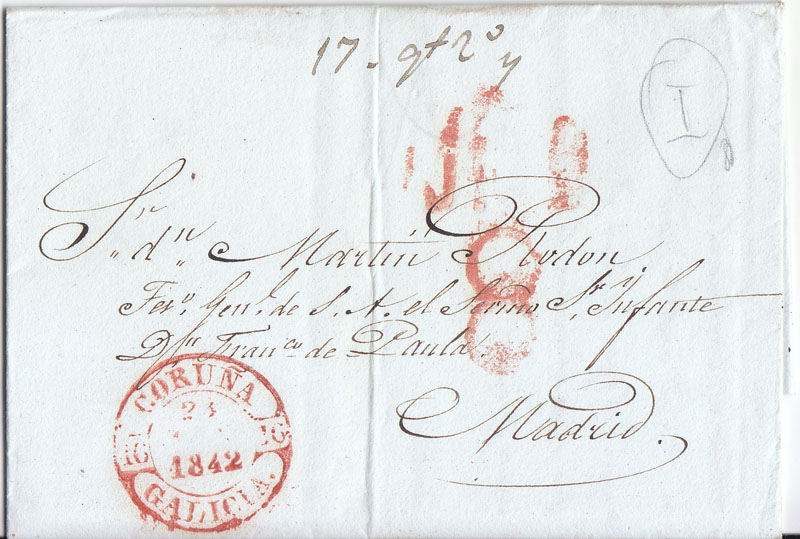 17 - qt 2º y
I
Sr. dn. Martin Rodon
Teso. Genl. de S. A. el Sermo. Sr. Infante
Dn. Franco. de Paula.
Madrid.
CORUÑA
1842
GALICIA.